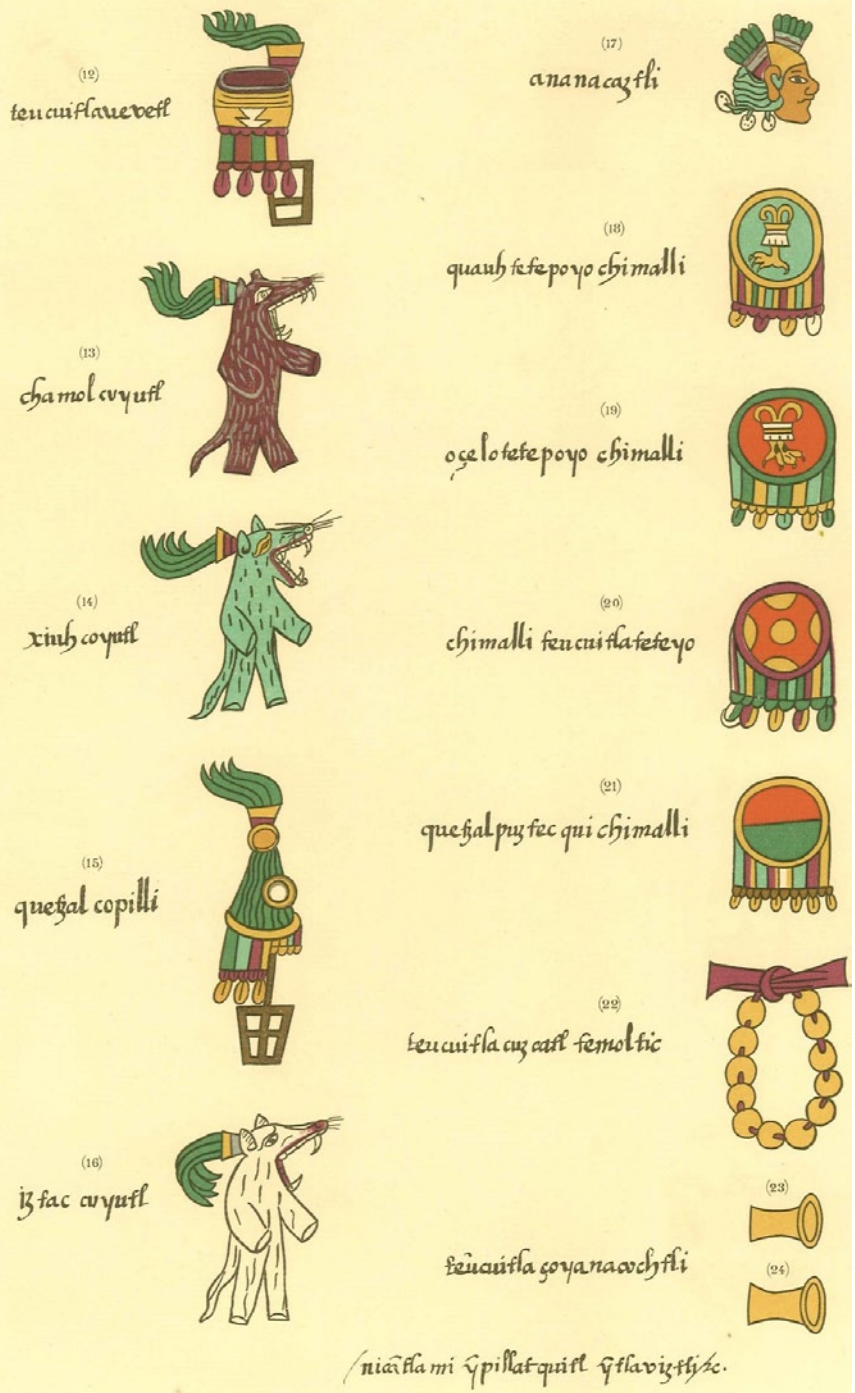 (12)
teucuitlauevetl
(13)
chamolcuyutl
(14)
xiuhcoyutl
(15)
quetzal copilli
(16)
iztac cuyutl
(17)
ananacaztli
(18)
quauhtetepoyo chimalli
(19)
oçelotetepoyo chimalli
(20)
chimalli teucuitlateteyo
(21)
quetzalpuztec qui chimalli
(22)
teucuitla cuzcatl temoltic
(23)
(24)
teũcuitla çoyanacochtli
nicã tlami ỹpillatquitl ỹtlaviztli &c.